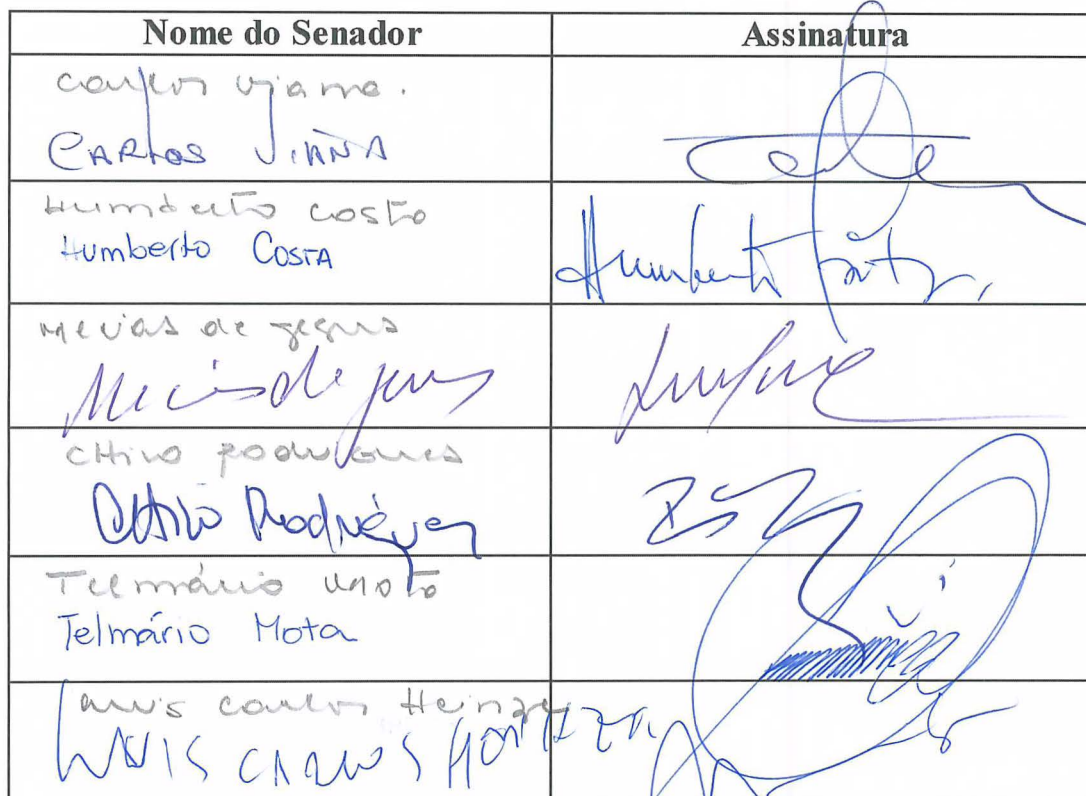 Nome do Senador Assinatura
Carlos Viana.
CARLOS VIANA
Humberto Costa
Humberto Costa Humberto Costa
Mecias de Jesus
Mecias de Jesus
Chico Rodrigues
Chico Rodrigues
Telmário Mota
Telmário Mota
Luis Carlos Heinze
LUIS CARLOS HEINZE